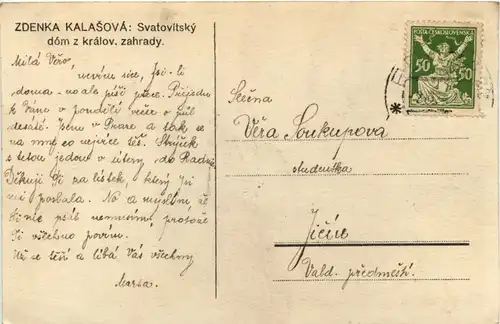 ZDENKA KALAŠOVÁ: Svatovítský
dóm z králov. zahrady.
POŠTA ČESKOSLOVENSKÁ
50 50
Milá Věro,
nevím sice, jsi-li
doma - no ale píši přece. Přijedu
k Vám v pondělí večer o půl
desáté. Jsem v Praze a tak se
na mne co nejvíce těš. Strýček
s tetou jedou v úterý do
Děkuji Ti za lístek, který jsi
mi poslala. No a myslím, že
Ti nic psát nemusím, protože
Ti všechno povím.
Už se těší a líbá Vás všechny
Slečna
Věra Soukupova
studentka
Jičín
Vald. předměstí.